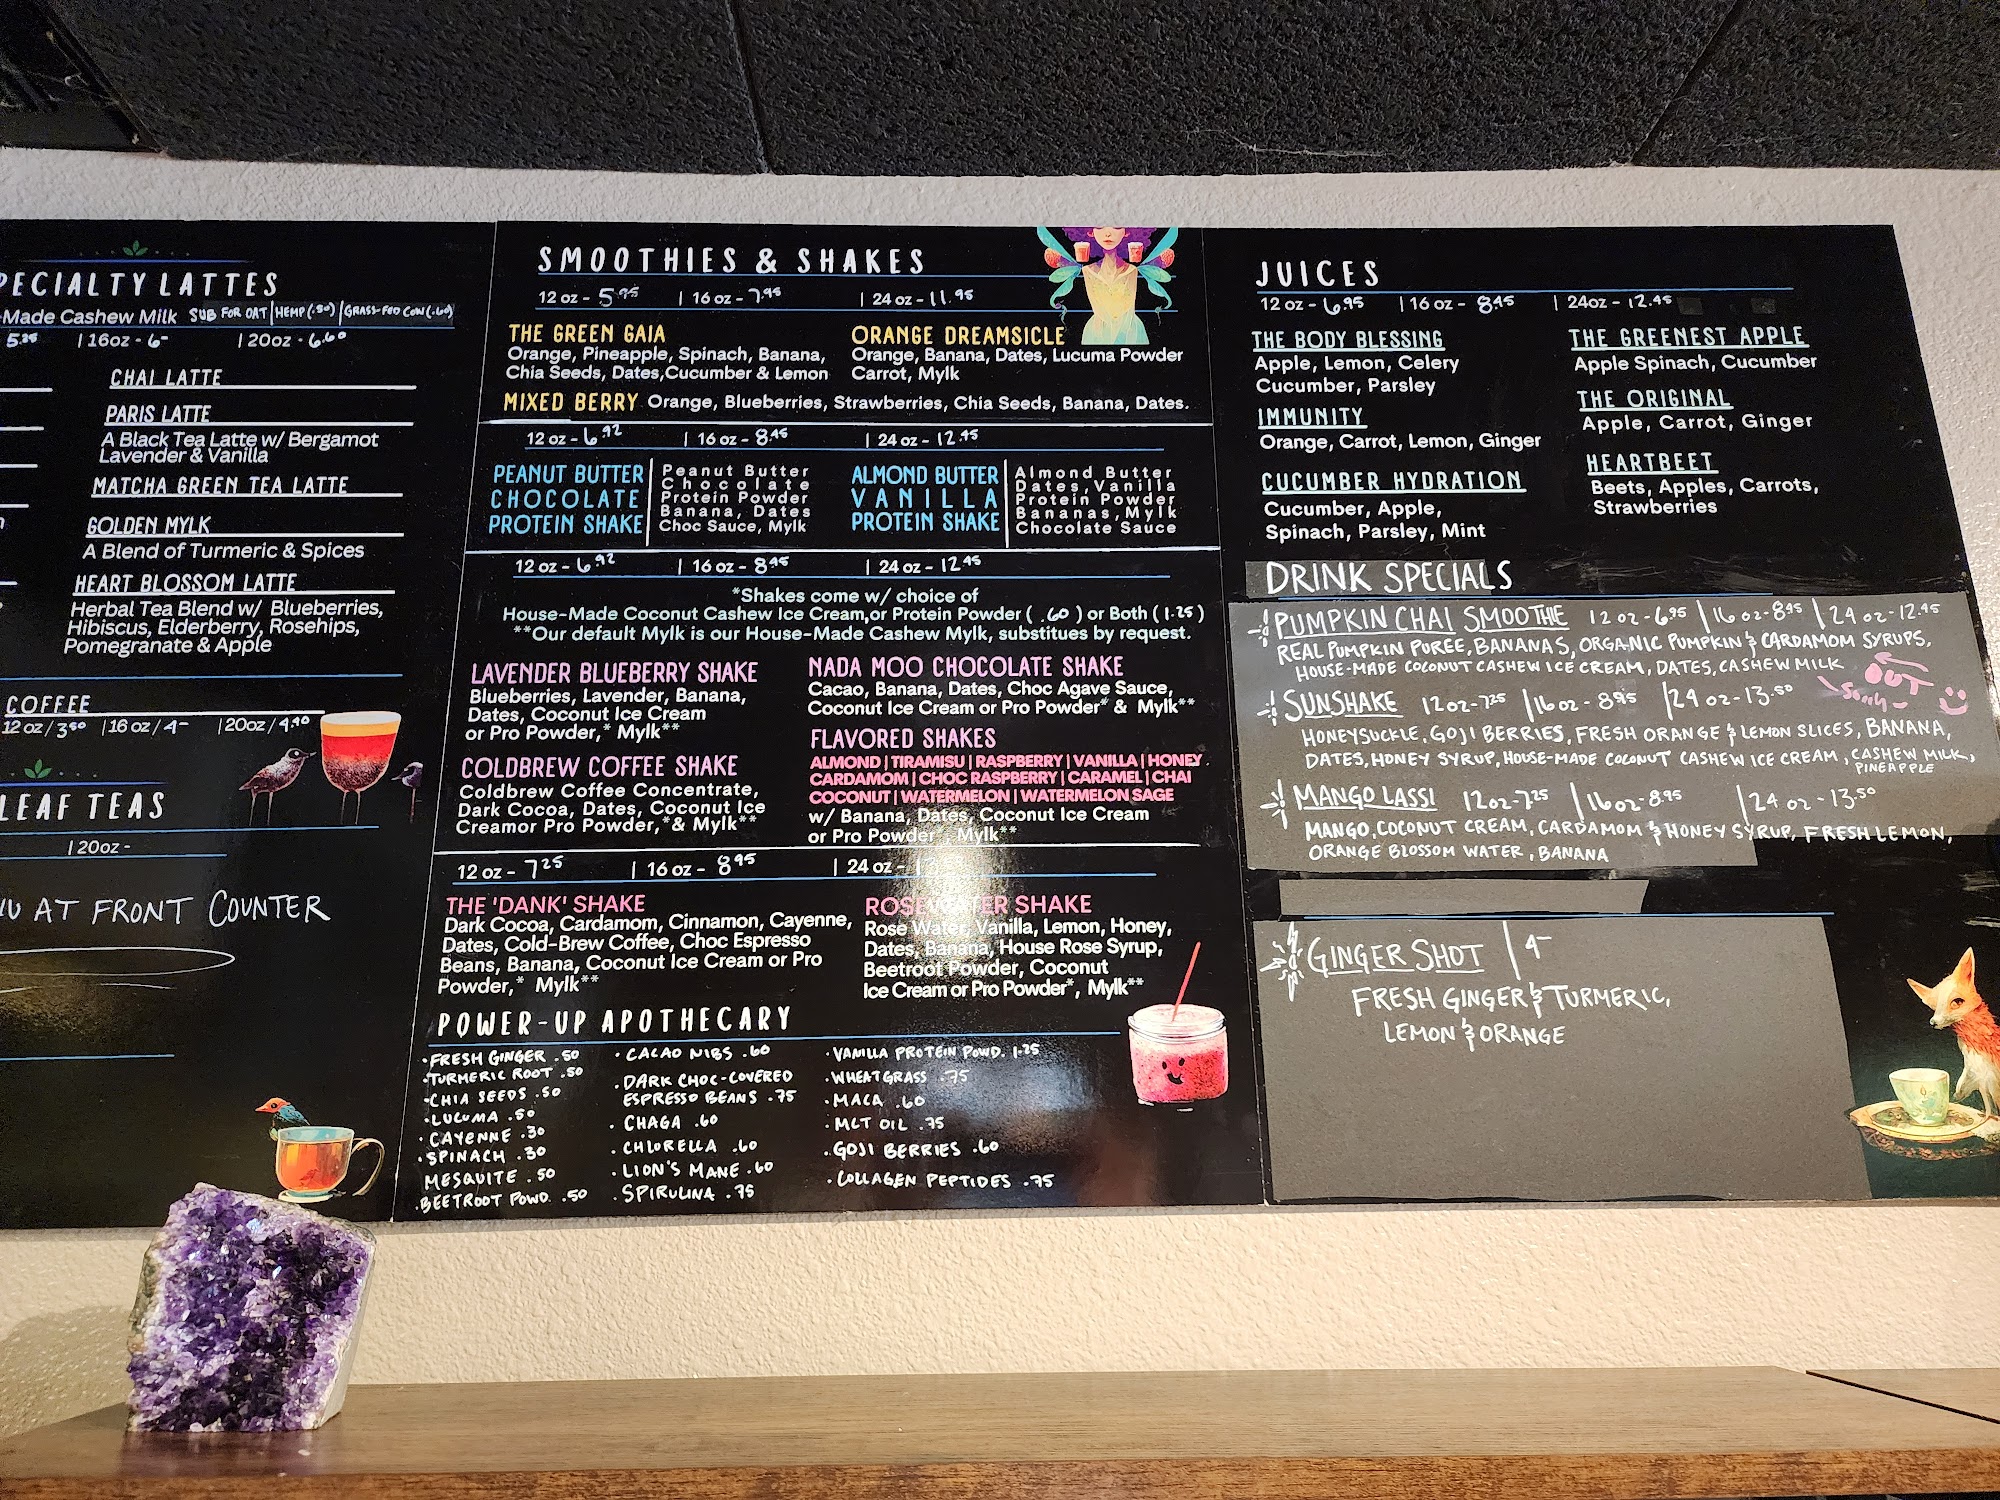 PECIALTY LATTES
Made Cashew Milk SUB FOR OAT | HEMP (.50) | GRASS-FED COW (.60)
5.25 | 16oz - 6- | 20oz - 6.60
CHAI LATTE
PARIS LATTE
A Black Tea Latte w/ Bergamot
Lavender & Vanilla
MATCHA GREEN TEA LATTE
GOLDEN MYLK
A Blend of Turmeric & Spices
HEART BLOSSOM LATTE
Herbal Tea Blend w/ Blueberries,
Hibiscus, Elderberry, Rosehips,
Pomegranate & Apple
COFFEE
12 oz / 3.50 | 16 oz / 4- | 20oz / 4.40
LEAF TEAS
| 20oz -
AT FRONT COUNTER
SMOOTHIES & SHAKES
12 oz - 5.95 | 16 oz - 7.95 | 24 oz - 11.95
THE GREEN GAIA
Orange, Pineapple, Spinach, Banana,
Chia Seeds, Dates,Cucumber & Lemon
ORANGE DREAMSICLE
Orange, Banana, Dates, Lucuma Powder
Carrot, Mylk
MIXED BERRY Orange, Blueberries, Strawberries, Chia Seeds, Banana, Dates.
12 oz - 6.92 | 16 oz - 8.45 | 24 oz - 12.45
PEANUT BUTTER
CHOCOLATE
PROTEIN SHAKE
Peanut Butter
Chocolate
Protein Powder
Banana, Dates
Choc Sauce, Mylk
ALMOND BUTTER
VANILLA
PROTEIN SHAKE
Almond Butter
Dates, Vanilla
Protein Powder
Bananas, Mylk
Chocolate Sauce
12 oz - 6.92 | 16 oz - 8.45 | 24 oz - 12.45
*Shakes come w/ choice of
House-Made Coconut Cashew Ice Cream,or Protein Powder ( .60 ) or Both ( 1.25 )
**Our default Mylk is our House-Made Cashew Mylk, substitues by request.
LAVENDER BLUEBERRY SHAKE
Blueberries, Lavender, Banana,
Dates, Coconut Ice Cream
or Pro Powder,* Mylk**
COLDBREW COFFEE SHAKE
Coldbrew Coffee Concentrate,
Dark Cocoa, Dates, Coconut Ice
Creamor Pro Powder,*& Mylk**
NADA MOO CHOCOLATE SHAKE
Cacao, Banana, Dates, Choc Agave Sauce,
Coconut Ice Cream or Pro Powder* & Mylk**
FLAVORED SHAKES
ALMOND | TIRAMISU | RASPBERRY | VANILLA | HONEY
CARDAMOM | CHOC RASPBERRY | CARAMEL | CHAI
COCONUT | WATERMELON | WATERMELON SAGE
w/ Banana, Dates, Coconut Ice Cream
or Pro Powder*, Mylk**
12 oz - 7.25 | 16 oz - 8.95 | 24 oz -
THE 'DANK' SHAKE
Dark Cocoa, Cardamom, Cinnamon, Cayenne,
Dates, Cold-Brew Coffee, Choc Espresso
Beans, Banana, Coconut Ice Cream or Pro
Powder,* Mylk**
ROSEWATER SHAKE
Rose Water, Vanilla, Lemon, Honey,
Dates, Banana, House Rose Syrup,
Beetroot Powder, Coconut
Ice Cream or Pro Powder*, Mylk**
POWER-UP APOTHECARY
• FRESH GINGER .50
• TURMERIC ROOT .50
• CHIA SEEDS .50
• LUCUMA .50
• CAYENNE .30
• SPINACH .30
MESQUITE .50
• BEETROOT POWD. .50
• CACAO NIBS .60
• DARK CHOC-COVERED
ESPRESSO BEANS .75
• CHAGA .60
• CHLORELLA .60
• LION'S MANE .60
• SPIRULINA .75
• VANILLA PROTEIN POWD. 1.25
• WHEATGRASS .75
• MACA .60
• MCT OIL .75
• GOJI BERRIES .60
• COLLAGEN PEPTIDES .75
JUICES
12 oz - 6.95 | 16 oz - 8.45 | 24oz - 12.45
THE BODY BLESSING
Apple, Lemon, Celery
Cucumber, Parsley
IMMUNITY
Orange, Carrot, Lemon, Ginger
CUCUMBER HYDRATION
Cucumber, Apple,
Spinach, Parsley, Mint
THE GREENEST APPLE
Apple Spinach, Cucumber
THE ORIGINAL
Apple, Carrot, Ginger
HEARTBEET
Beets, Apples, Carrots,
Strawberries
DRINK SPECIALS
PUMPKIN CHAI SMOOTHIE 12 oz - 6.95 | 16 oz - 8.45 | 24 oz - 12.45
REAL PUMPKIN PUREE, BANANAS, ORGANIC PUMPKIN & CARDAMOM SYRUPS,
HOUSE-MADE COCONUT CASHEW ICE CREAM, DATES, CASHEW MILK
OUT
Sorry
SUNSHAKE 12 oz - 7.25 | 16 oz - 8.95 | 24 oz - 13.50
HONEYSUCKLE, GOJI BERRIES, FRESH ORANGE & LEMON SLICES, BANANA,
DATES, HONEY SYRUP, HOUSE-MADE COCONUT CASHEW ICE CREAM, CASHEW MILK,
PINEAPPLE
MANGO LASSI 12 oz - 7.25 | 16 oz - 8.95 | 24 oz - 13.50
MANGO, COCONUT CREAM, CARDAMOM & HONEY SYRUP, FRESH LEMON,
ORANGE BLOSSOM WATER, BANANA
GINGER SHOT | 4-
FRESH GINGER & TURMERIC,
LEMON & ORANGE